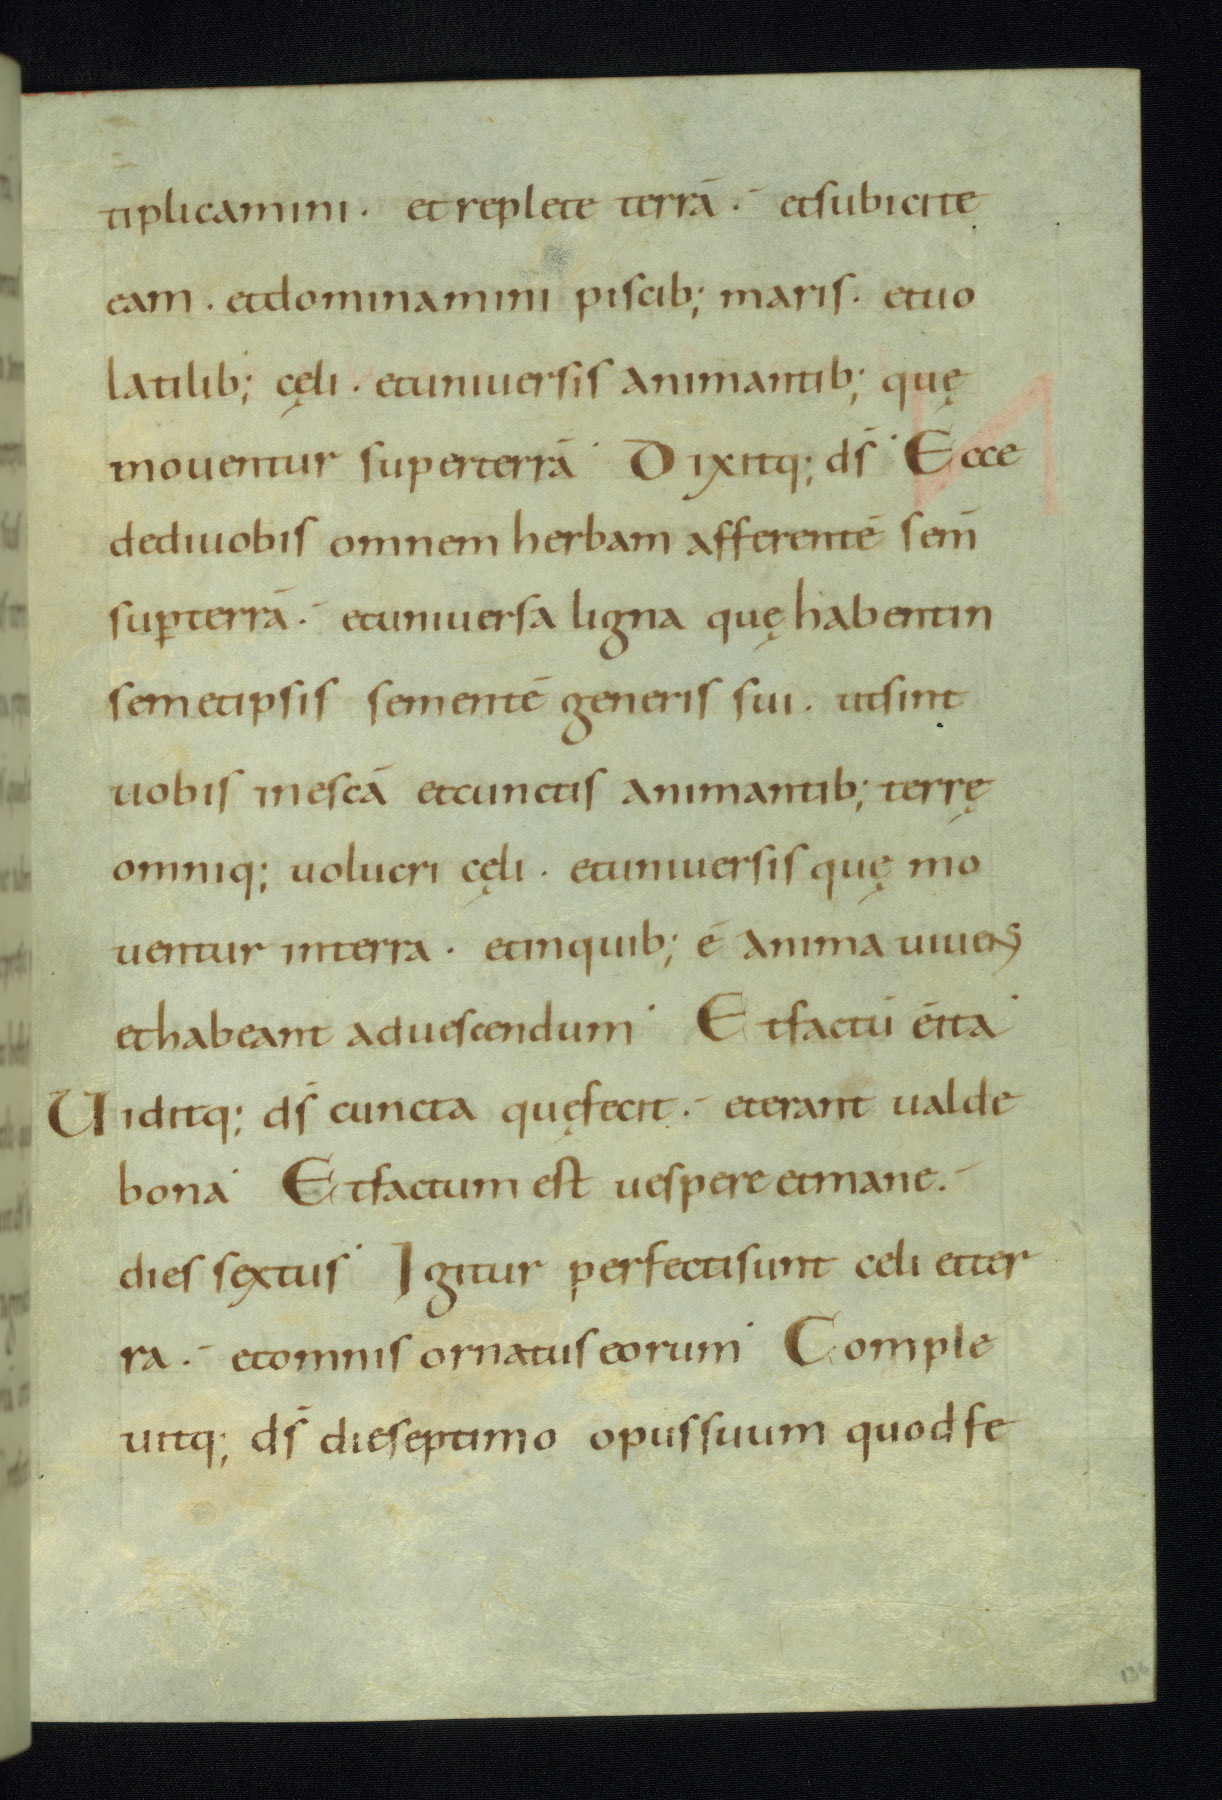 tiplicamini · et replete terrā ·⁻ et subicite
eam · et dominamini piscib; maris · et uo
latilib; cęli · et uniuersis animantib; quę
mouentur super terrā · Dixitq; ds̄ · Ecce
dedi uobis omnem herbam afferentē sem̄
sup terrā ·⁻ et uniuersa ligna quę habent in
semetipsis sementē generis sui · ut sint
uobis in escā et cunctis animantib; terrę
omniq; uolucri cęli · et uniuersis quę mo
uentur in terra · et in quib; ē anima uiuens
et habeant ad uescendum · Et factū ē ita ·
Uiditq; ds̄ cuncta quę fecit ·⁻ et erant ualde
bona · Et factum est uespere et mane ·⁻
dies sextus · Igitur perfecti sunt celi et ter
ra ·⁻ et omnis ornatus eorum · Comple
uitq; ds̄ die septimo opus suum quod fe